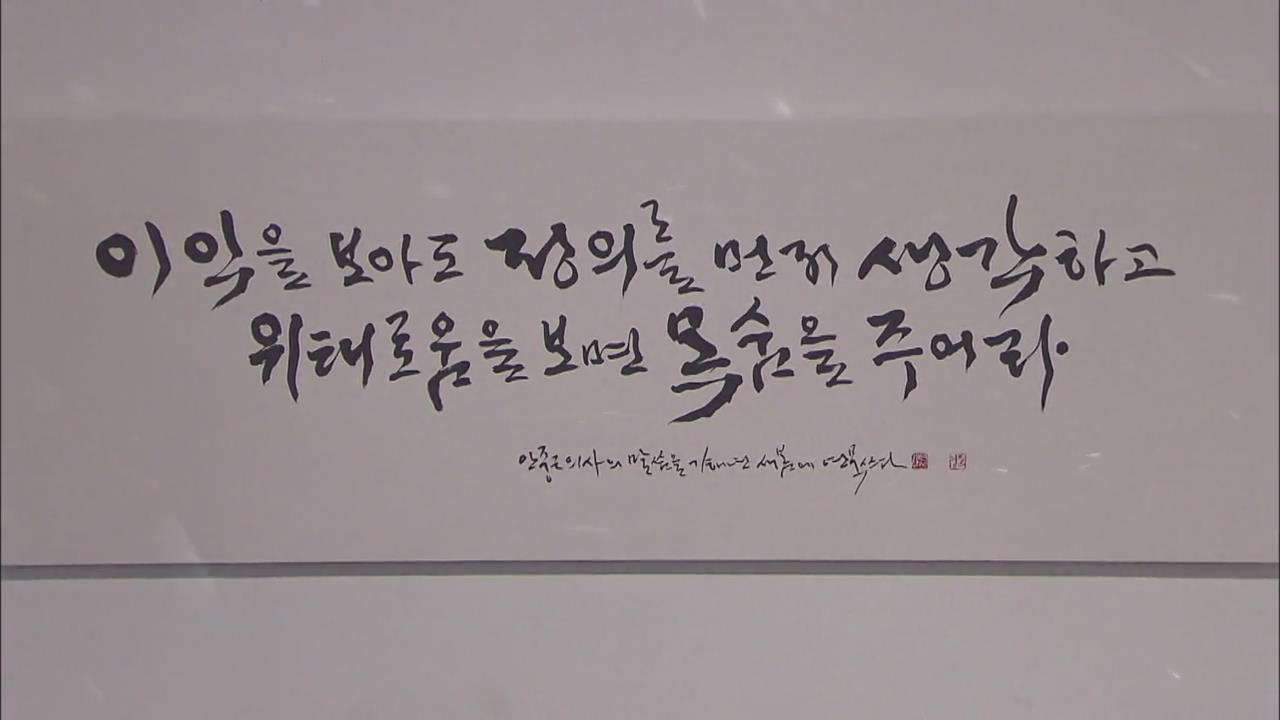 이익을 보아도 정의를 먼저 생각하고
위태로움을 보면 목숨을 주어라.
안중근의사의 말씀을 새봄에 쓰다